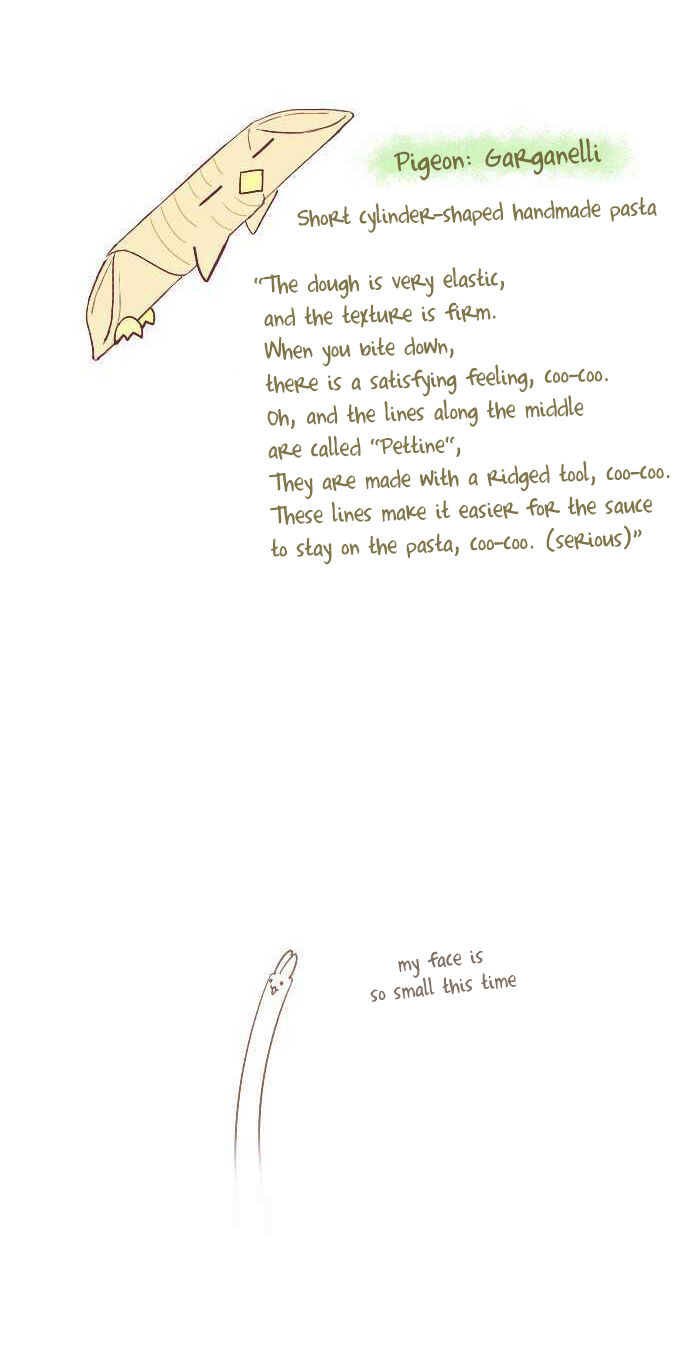 Pigeon: Garganelli
Short cylinder-shaped handmade pasta
"The dough is very elastic,
and the texture is firm.
When you bite down,
there is a satisfying feeling, coo-coo.
Oh, and the lines along the middle
are called "Pettine",
They are made with a ridged tool, coo-coo.
These lines make it easier for the sauce
to stay on the pasta, coo-coo. (serious)"
my face is
so small this time